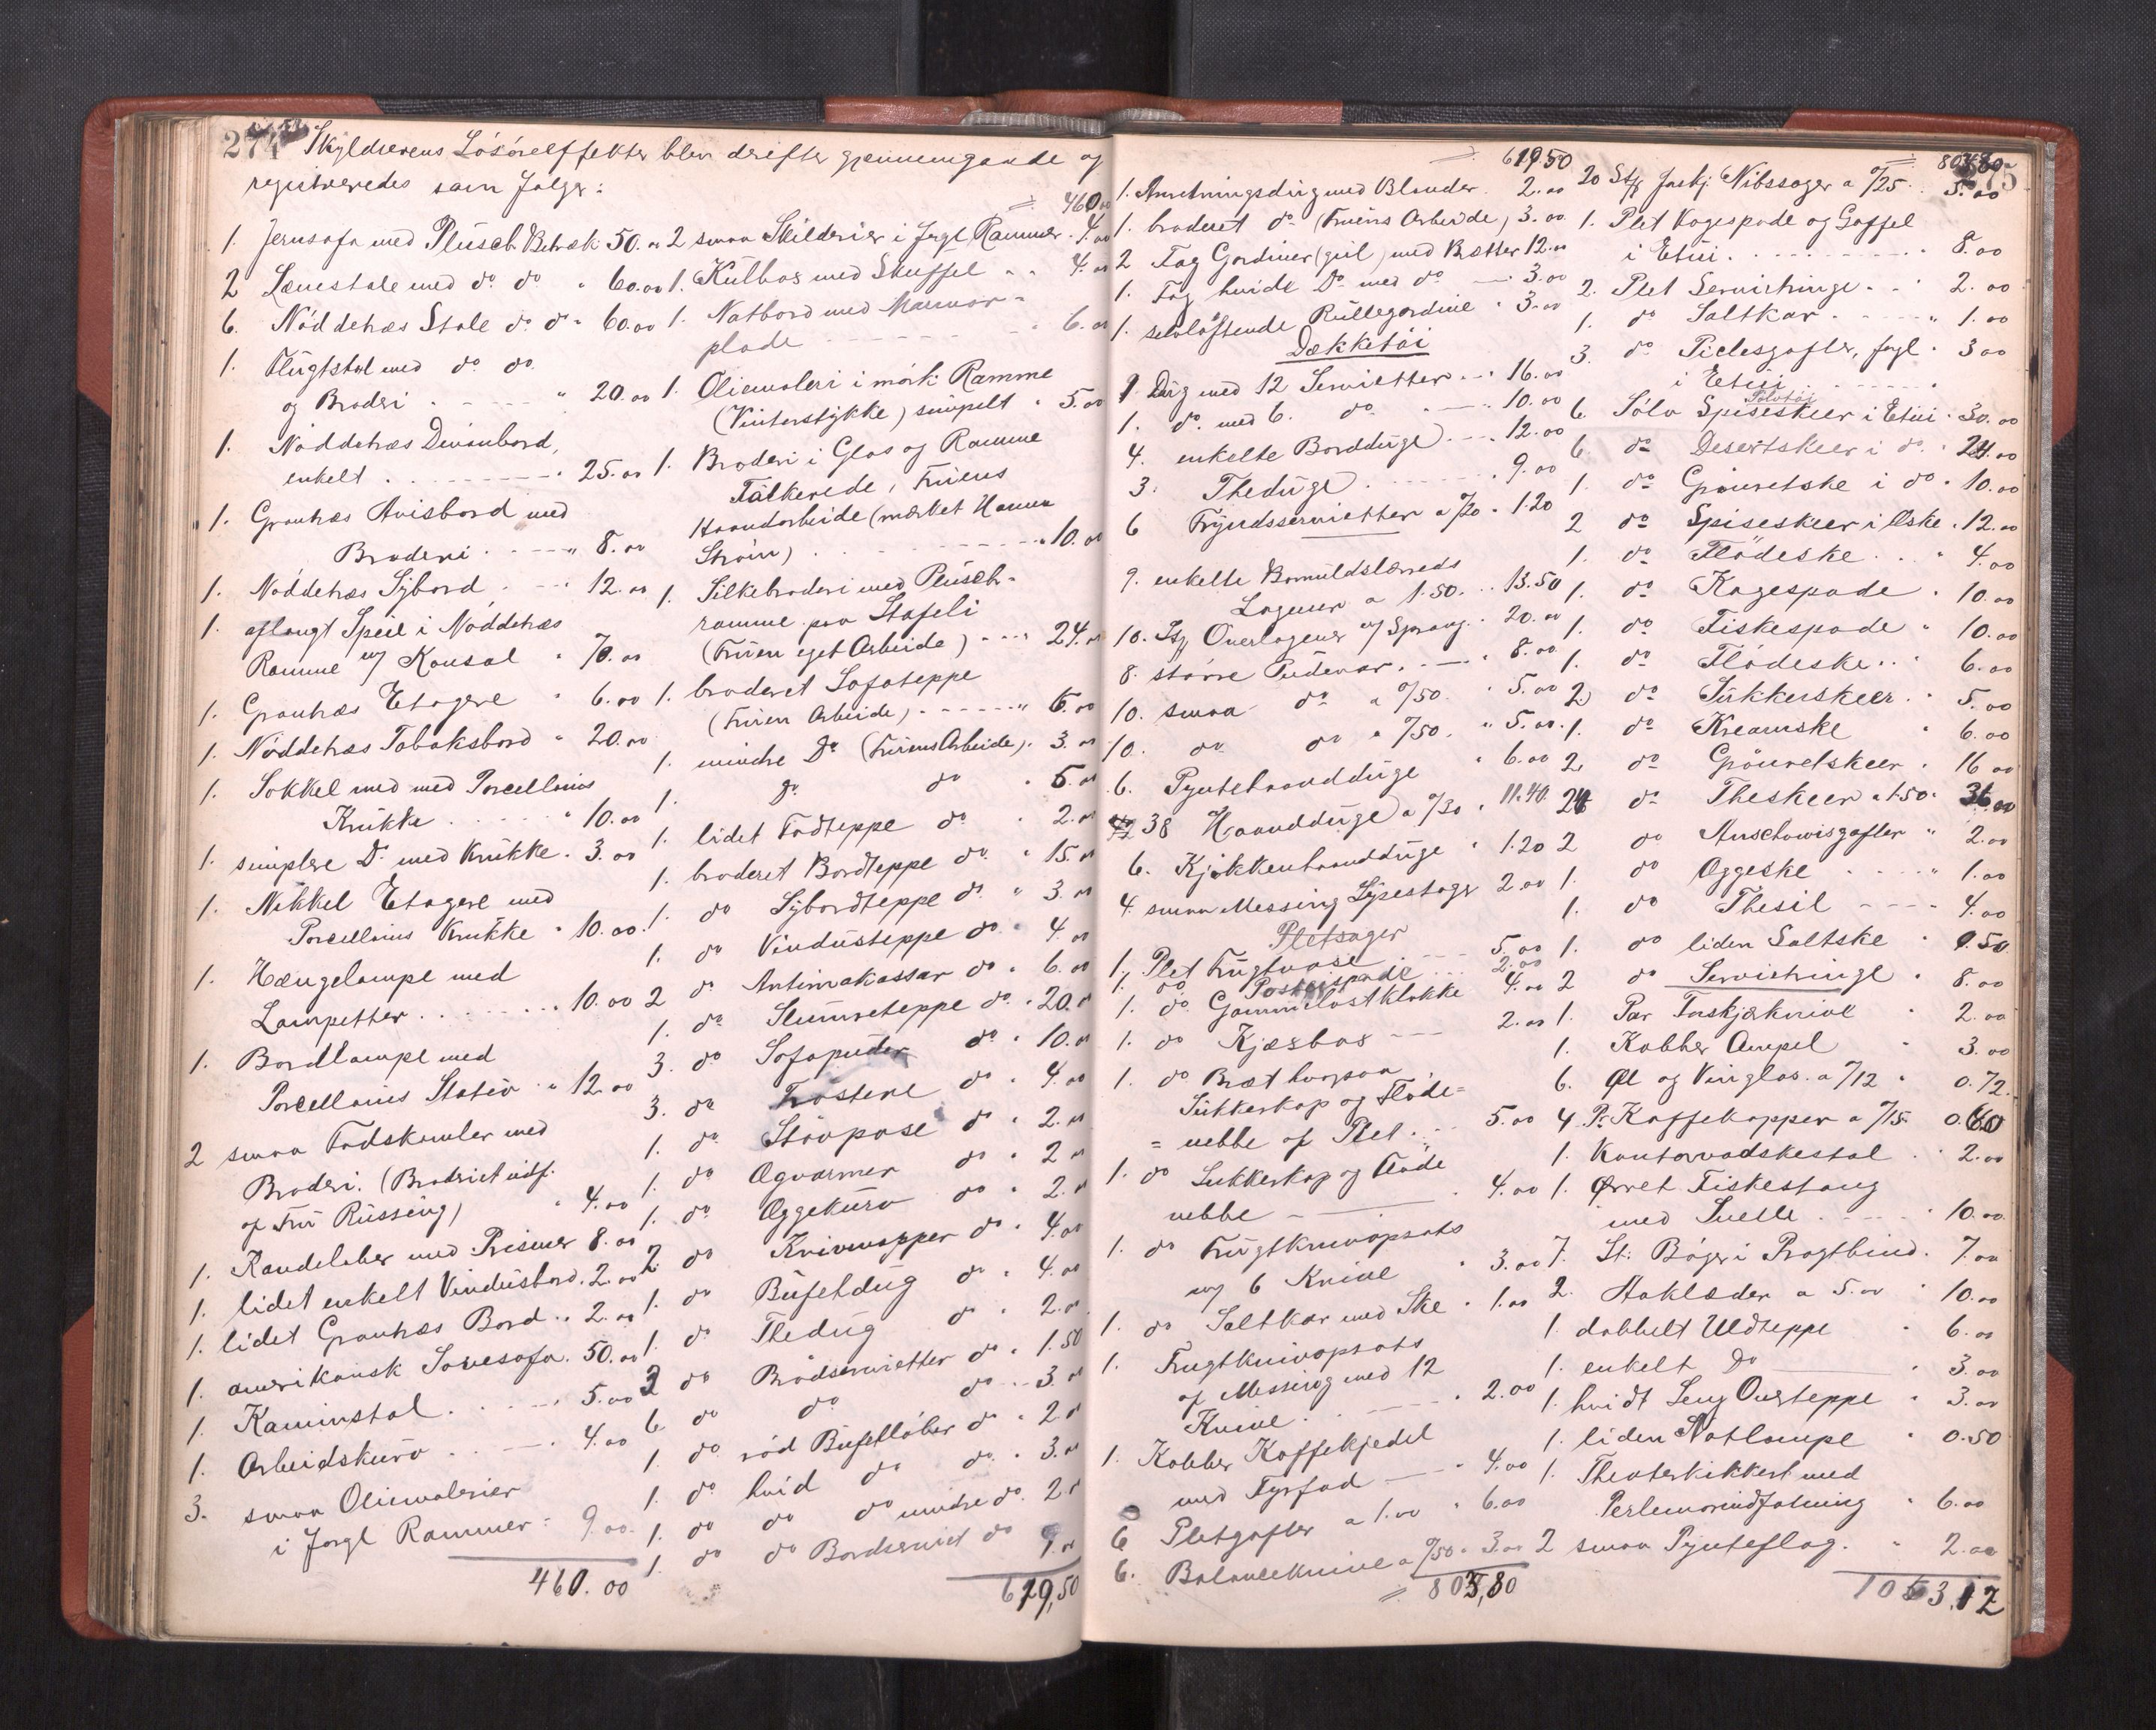 274
Skyldnerens Løsøreeffekter blev derefter gjennemgaaede og
registreredes som følger:
1. Jernsofa med Plüsch Betræk 50.00
2 Lænestole med do do " 60.00
6. Nøddetræs Stole do do " 60.00
1. Flugtstol med do do
og Broderi . - - - " 20.00
1. Nøddetræs Divanbord,
enkelt . - - - - " 25.00
1. Grantræs Avisbord med
Broderi . - - - " 8.00
1. Nøddetræs Sybord . - - - 12.00
1. aflangt Speil i Nøddetræs
Ramme m/ Konsol " 70.00
1. Grantræs Etagere " 6.00
1. Nøddetræs Tobaksbord " 20.00
1. Sokkel med med Porcellains
Krukke . . . . . " 10.00
1. simplere Do med Krukke . 3.00
1. Nikkel Etagere med
Porcellains Krukke " 10.00
1. Hængelampe med
Lampetter . . . . . . 10.00
1. Bordlampe med
Porcellains Stativ " 12.00
2 smaa Fodskamler med
Broderi. (Broderiet udf.
af Fru Russeng) " 4.00
1. Kandelaber med Prismer 8.00
1. lidet enkelt Vinduesbord. 2.00
1. lidet Grantræs Bord . " 2.00
1. amerikansk Sovesofa. 50.00
1. Kaminstol . . - - . 5.00
1. Arbeidskurv . . - . 4.00
3. smaa Oliemalerier
i forgl Rammer = 9.00
460.00
460.00
2 smaa Skilderier i forgl Rammer . 4.00
1. Kulbox med Skuffel " " 4.00
1. Natbord med Marmor=
plade - - - - - - " 6.00
1. Oliemaleri i mørk Ramme
(Vinterstykke) simpelt " 5.00
1. Broderi i Glas og Ramme
Falkerede, Fruens
Haandarbeide (mærket Hanna
Strøm) . - - - - - - " 10.00
1. Silkebroderi med Plüsch=
ramme paa Stafeli
(Fruen eget Arbeide) - - - 24.00
1. broderet Sofateppe
(Fruen Arbeide) . - - - - " 6.00
1. mindre Do (Fruens Arbeide). 3.00
1. Do do " 5.00
1. lidet Fodteppe do " 2.00
1. broderet Bordteppe do " 15.00
1. do Sybordteppe do " 3.00
1. do Vinduesteppe do " 4.00
2 do Antimakassar do " 6.00
1. do Slumreteppe do " 20.00
3. do Sofapuder do " 10.00
3. do Trøstene do " 4.00
1. do Støvpose do " 2.00
1. do Ægvarmer do " 2.00
1. do Æggekurv do " 2.00
2. do Knivmapper do " 4.00
1. do Bufetdug do " 4.00
1. do Thedug do " 2.00
3 do Brødservietter do " 1.50
6 do do do - 3.00
1. do rød Bufetløber do " 2.00
1. do hvid do do " 3.00
1. do do do mindre do. 2.00
1. do do Bordserviet do 9.00
619,50
619.50
1. Anretningsdug med Blonder . 2.00
1. broderet do (Fruens Arbeide) 3.00
2 Fag Gardiner (gul) med Brætter 12.00
1. Fag hvide Do med do - 3.00
1. selvløftende Rullegardine " 3.00
Dækketøi
1 Dug med 12 Servietter . . . 16.00
1. do med 6. do . - - 10.00
4. enkelte Bordduge . . - . 12.00
3. Theduge . . - - - - 9.00
6 Fryndsservietter a 0/20 " 1.20
9. enkelte Bomuldslærreds
Lagener a 1.50 . . 13.50
10. Overlagener m/ Sprang . 20.00
8. større Pudevar . - - . 8.00
10. smaa do a 0/50 . 5.00
10. do do " 0/50 . " 5.00
6. Pyntehaandduge " 6.00
38 Haandduge a 0/30 " 11.40
6. Kjøkkenhaandduge " 1.20
4. smaa Messing Lysestager 2.00
Pletsager
1. Plet Frugtvase . - - - 5.00
1. do Posteispade . . . 2.00
1. do Gammelostklokke 4.00
1. do Kjæsbox - - - 2.00
1. do Bræt hvorpaa
Sukkerkop og Fløde=
= nebbe af Plet . - 5.00
1. do Sukkerkop og Fløde
nebbe - - - . 4.00
1. do Frugtknivopsats
m/ 6 Knive " 3.00
1. do Saltkar med Ske " 1.00
1. Frugtknivopsats
af Messing med 12
Knive . - - - . 2.00
1. Kobber Kaffekjedel
med Fyrfad - - " 4.00
6 Pletgafler a 1.00 " 6.00
6. Balanceknive a 0/50 " 3.00
803,80
803,80
275
20 Stk forskj. Nibssager a 0/25 . 5.00
1. Plet Kagespade og Gaffel
i Etui . . - - - - - . 8.00
2. Plet Servietringe . - " 2.00
1. do Saltkar . - - - - " 1.00
3. do Piclesgafler, forgl. 3.00
i Etui . - - - - .
Sølvtøi
6. Sølv Spiseskeer i Etui . 30.00
6. do Desertskeer i do . 24.00
1. do Grøntske i do . 10.00
2 do Spiseskeer i Æske . 12.00
1. do Flødeske . . " 4.00
1. do Kagespade . 10.00
1. do Fiskespade " 10.00
1. do Flødeske . . " 6.00
2 do Sukkerskeer . " 5.00
1. do Kreamske " 6.00
2. do Grøntskeer . 16.00
24 do Theskeer a 1.50 . 36.00
2 do Anschovisgafler " 2.00
1. do Æggeske . - - " 1.00
1. do Thesil - - - - 4.00
1. do liden Saltske " 0.50
2 do Servietringe . 8.00
1. Par Forskjærknive " 2.00
1. Kobber Ampel " 3.00
6. Øl og Vinglas . a 0/12 " 0.72
4. Pr Kaffekopper a 0/15 0.60
1 Kontorvadskestol . . 2.00
1. Ørret Fiskestang
med Snelle . - - - " 10.00
7. St: Bøger i Pragtbind . 7.00
2. Haklæder a 5.00 " 10.00
1. dobbelt Uldteppe " 6.00
1. enkelt Do - - " 3.00
1. hvidt Seng Overteppe " 3.00
1. liden Natlampe " 0.50
1. Theaterkikkert med
Perlemorindfatning " 6.00
2 smaa Pynteflag . " 2.00
1053.12